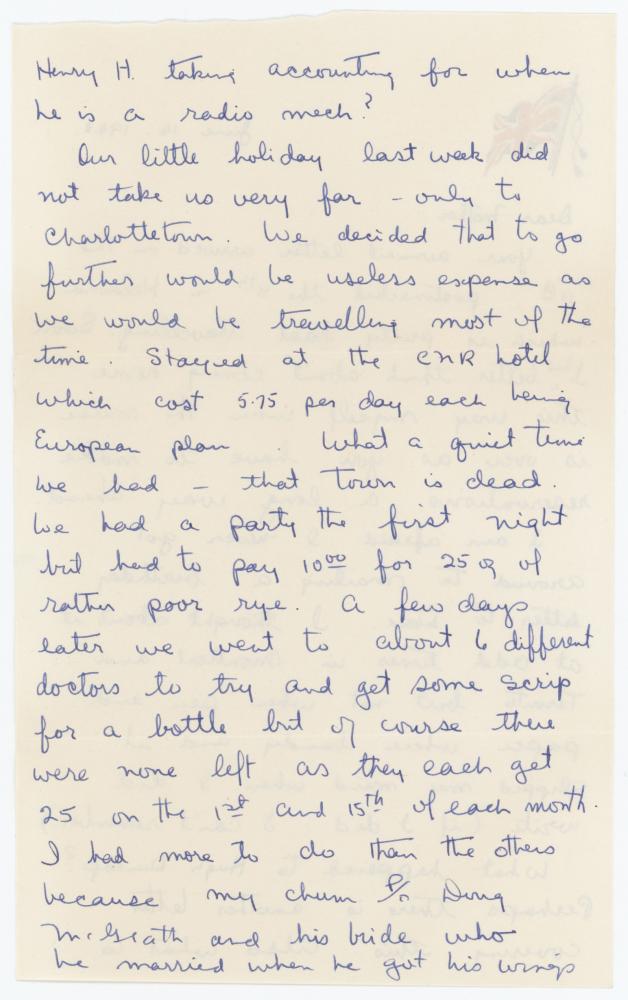 Henry H. taking accounting for when
he is a radio mech?
Our little holiday last week did
not take us very far - only to
Charlottetown. We decided that to go
further would be useless expense as
we would be travelling most of the
time. Stayed at the CNR hotel
which cost 5.75 per day each being
European plan. What a quiet time
we had - that town is dead.
We had a party the first night
but had to pay 10 00 for 25 oz of
rather poor rye. A few days
later we went to about 6 different
doctors to try and get some scrip
for a bottle but of course there
were none left as they each get
25 on the 1st and 15th of each month.
I had more to do than the others
because my chum P/O Doug
McGrath and his bride who
he married when he got his wings